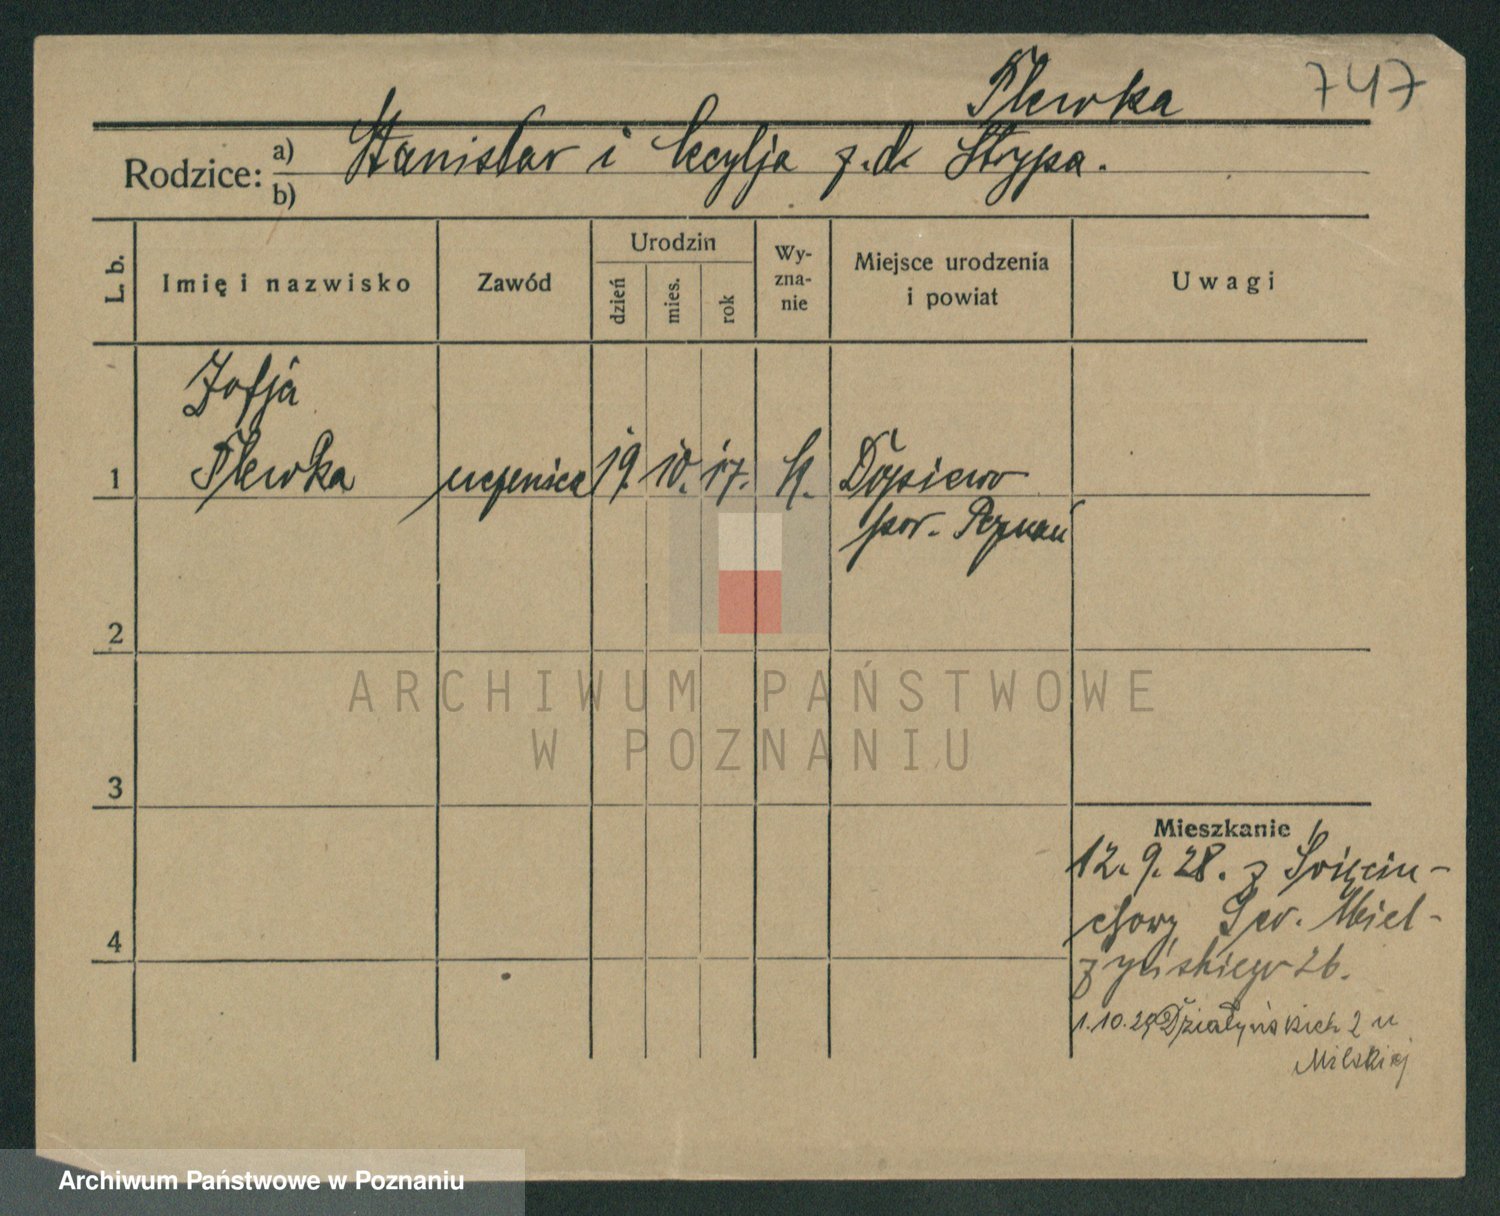 747
Plewka
Rodzice: a) Stanisław i Cecylja z.d. Strypa.
b)
L. b.
Imię i nazwisko
Zawód
Urodzin
dzień
mies.
rok
Wy-
zna-
nie
Miejsce urodzenia
i powiat
Uwagi
Zofja
1 Plewka uczenica 19. 10. 17. kt. Dopiewo
pow. Poznań
2
ARCHIWUM PAŃSTWOWE
W POZNANIU
3
Mieszkanie
12. 9. 28. z Święcin-
chowy Miel-
4
żyńskiego 26.
1.10.29 Działyńskich 2 u
Milskiej
Archiwum Państwowe w Poznaniu